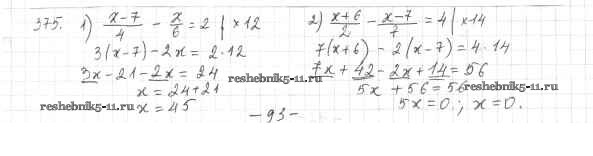 375. 1) (x-7)/4 - x/6 = 2 | ×12
3(x-7) - 2x = 2·12
3x - 21 - 2x = 24
x = 24+21
x = 45
2) (x+6)/2 - (x-7)/7 = 4 | ×14
7(x+6) - 2(x-7) = 4·14
7x + 42 - 2x + 14 = 56
5x + 56 = 56
5x = 0; x = 0.
reshebnik5-11.ru
reshebnik5-11.ru
reshebnik5-11.ru
- 93 -